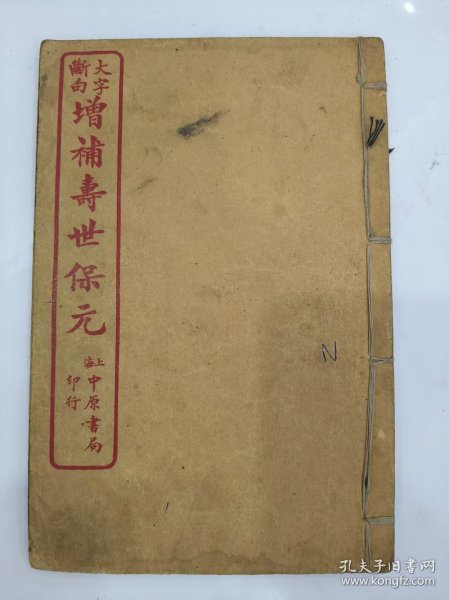 大字
斷句
增補壽世保元
上海
中原書局
印行
N
孔夫子旧书网
www.kongfz.com